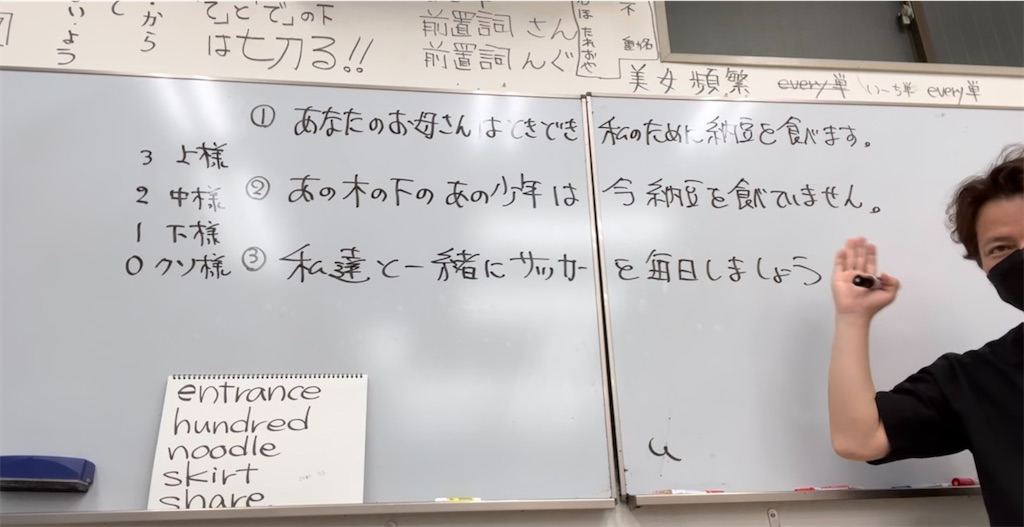 から
いよう
「て」と「で」の下
は七刀る!!
前置詞さん
前置詞んぐ
美女頻繁 every単 い〜ち単 every単
① あなたのお母さんはときどき私のために納豆を食べます。
3 上様
2 中様
② あの木の下のあの少年は今納豆を食べていません。
1 下様
0 クソ様
③ 私達と一緒にサッカーを毎日しましょう
entrance
hundred
noodle
skirt
share